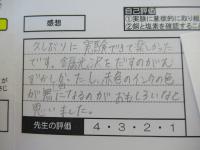 感想
自己評価
①実験に意欲的に取り組
②銅と塩素を確認するこ
久しぶりに実験できて楽しかった
です。金属光沢をだすのがむ
ずかしかったし、赤色のインクの色
が無になるのがおもしろいなと
思いました。
先生の評価
4・3・2・1